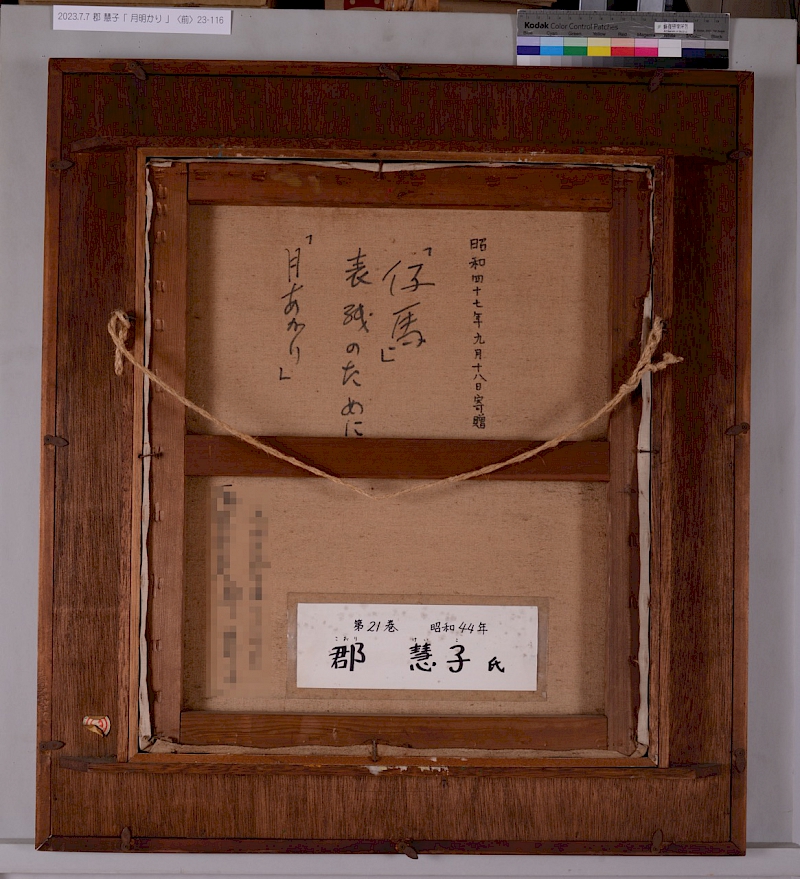 2023.7.7 郡 慧子「 月明かり 」〈前〉23-116
Kodak Color Control Patches
昭和四十七年九月十八日寄贈
「仔馬」
表紙のために
「月あかり」
第21巻 昭和44年
こおり けい こ
郡 慧子 氏